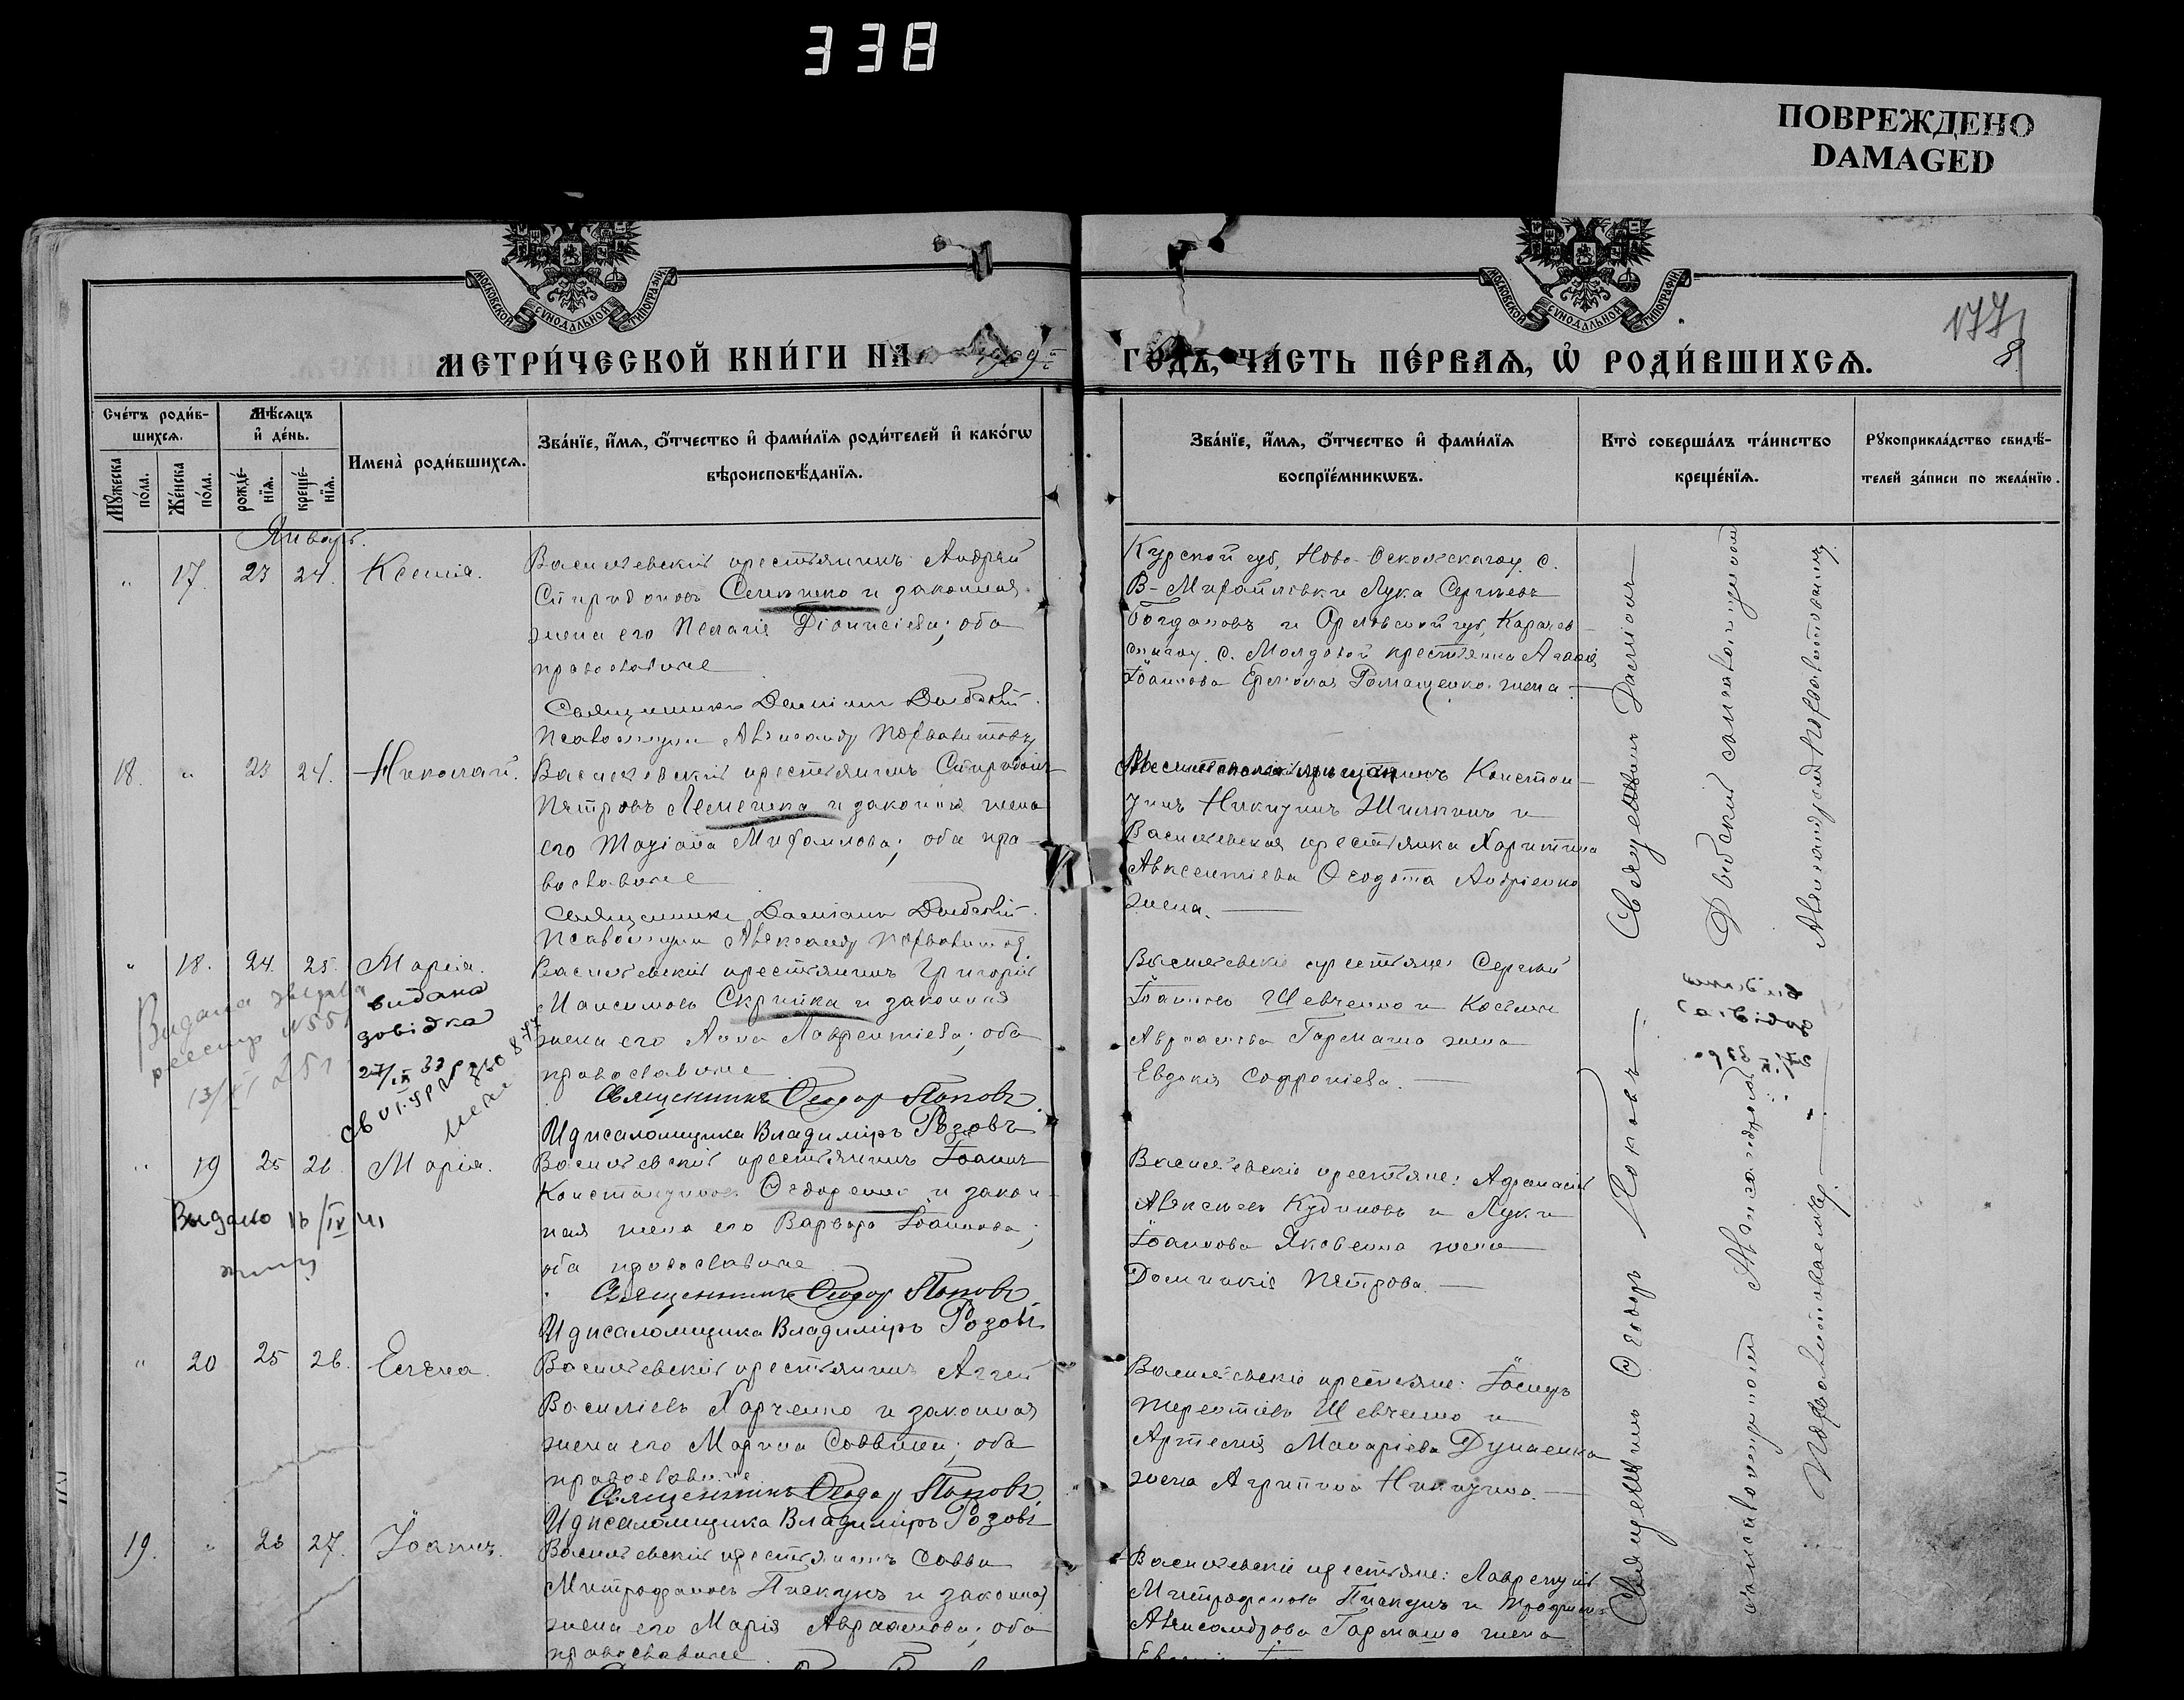 338
ПОВРЕЖДЕНО
DAMAGED
МОСКОВСКОЙ СѴНОДАЛЬНОЙ ТИПОГРАФІИ
МОСКОВСКОЙ СѴНОДАЛЬНОЙ ТИПОГРАФІИ
177
8
МЕТРИ́ЧЕСКОЙ КНИ́ГИ НА 1909й
ГОДЪ, ЧА́СТЬ ПЕ́РВАѦ, Ѡ҆ РОДИ́ВШИХСѦ.
Сче́тъ роди́в-
шихсѧ.
Мꙋжеска по́ла.
Же́нска по́ла.
Мѣ́сѧцъ
и҆ де́нь.
рожде́-
нїѧ.
креще́-
нїѧ.
И҆мена̀ роди́вшихсѧ.
Зва́нїе, и҆́мѧ, ѻ҆́тчество и҆ фами́лїѧ роди́телей и҆ како́гѡ
вѣроисповѣ́данїѧ.
Зва́нїе, и҆́мѧ, ѻ҆́тчество и҆ фами́лїѧ
воспрїе́мникѡвъ.
Кто̀ соверша́лъ та́инство
креще́нїѧ.
Рꙋкоприкла́дство свидѣ́-
телей за́писи по жела́нїю.
Январь.
" 17. 23 24. Ксенія.
Васильевскій крестьянинъ Андрей
Спиридоновъ Семинко и законная
жена его Пелагія Діонисіева; оба
православные
Священникъ Даміанъ Двибскій.
Псаломщикъ Александръ
Курской губ, Ново-Оскольскаго у. с.
В-Михайловки Лука Сергѣевъ
Богдановъ и Орловской губ, Карачев-
скаго у. с. Молдовой крестьянка Агафія
Іоаннова Ромащенко жена.
18. " 23 24. Николай.
Васильевскій крестьянинъ Спиридонъ
Петровъ Лемешка и законная жена
его Татіана Михаилова; оба пра-
вославные
Священникъ Даміанъ Двибскій.
Псаломщикъ Александръ
Констан-
тинъ Никитинъ Шишкинъ и
Васильевская крестьянка Харитина
Авксентіева Ѳеодота Андріенко
жена.
" 18. 24. 25. Марія.
Видана
реестр N 551
13/
видана
довідка
27/IX 37
Васильевскій крестьянинъ Григорій
Максимовъ Скрипка и законная
жена его Анна Лаврентіева; оба
православные
Священникъ Ѳеодоръ Поповъ.
И д псаломщика Владиміръ Розовъ
Васильевскіе крестьяне Сергѣй
Іоанновъ Шевченко и Косьмы
Авраамова Гармаша жена
Евдокія Софроніева.
" 19 25 26 Марія.
Видано 16/IV 41
Васильевскій крестьянинъ Іоаннъ
Константиновъ Ѳедоренко и закон-
ная жена его Варвара Іоаннова;
оба православные
Священникъ Ѳеодоръ Поповъ
И д псаломщика Владиміръ Розовъ
Васильевскіе крестьяне: Афанасій
Алексѣевъ Кудиновъ и Луки
Іоаннова Яковенка жена
Домникія Петрова.
" 20 25 26. Елена.
Васильевскій крестьянинъ Аггей
Василіевъ Харченко и законная
жена его Марина Саввина; оба
православные
Священникъ Ѳеодоръ Поповъ
И д псаломщика Владиміръ Розовъ
Васильевскіе крестьяне: Іосифъ
Терентіевъ Шевченко и
Артемія Макаріева Дунаенка
жена Агрипина Никитина.
19. " 26 27. Іоаннъ.
Васильевскій крестьянинъ Савва
Митрофановъ Пискунъ и законная
жена его Марія Авраамова; оба
православные
Васильевскіе крестьяне: Лаврентій
Митрофановъ Пискунъ и Трофима
Александрова Гармаша жена
Священникъ Даміанъ
Двибскій
Александръ
Священникъ Ѳеодоръ Поповъ